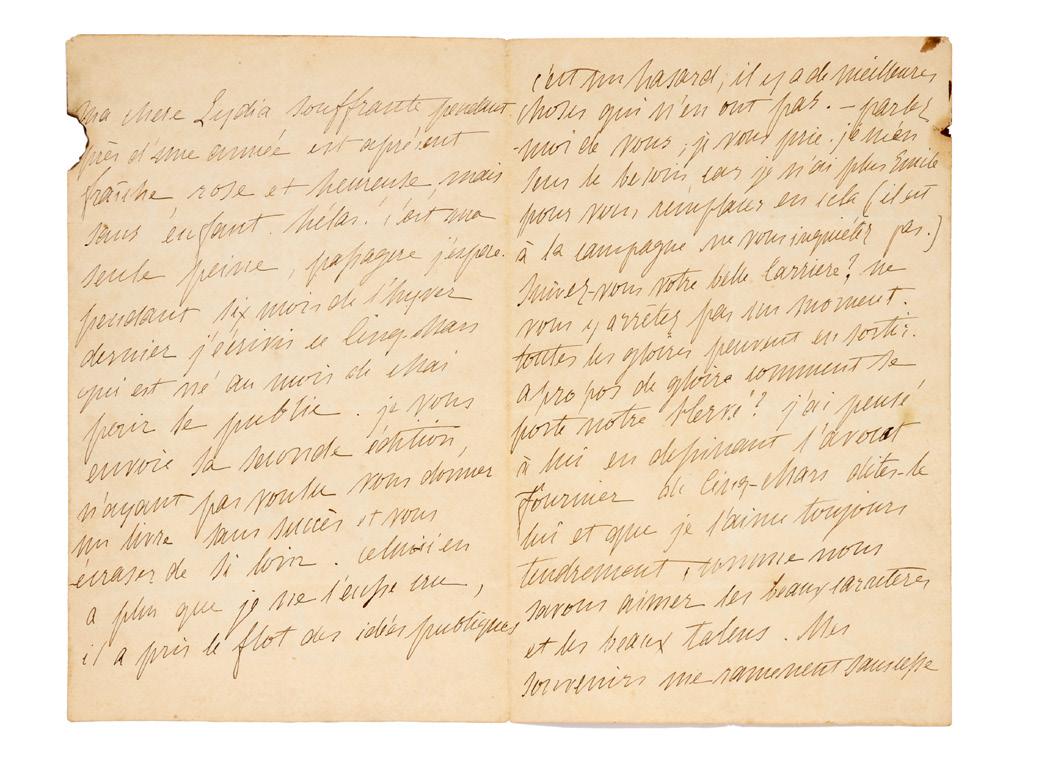 ma chere Lydia souffrante pendant
près d'une année est aprésent
fraîche rose et heureuse, mais
sans enfant. hélas! c'est ma
seule peine, passagere j'espere.
pendant six mois de l'hyver
dernier j'écrivis ce Cinq-Mars
qui est né au mois de Mai
pour le public. je vous
envoie sa seconde édition,
n'ayant pas voulu vous donner
un livre sans succès et vous
écraser de si loin. celui-ci en
a plus que je ne l'eusse cru,
il a pris le flot des idées publiques
c'est un hasard, il y a de meilleures
choses qui n'en ont pas. – parlez
-moi de vous, je vous prie. j'en
sens le besoin, car je n'ai plus Emile
pour vous remplacer en cela (il est
à la campagne ne vous inquiétez pas.)
suivez-vous votre belle Carriere? ne
vous y arretez pas un moment.
toutes les gloires peuvent en sortir.
apropos de gloire comment se
porte notre Hervé? j'ai pensé
à lui en dessinant l'avocat
fournier de Cinq-Mars dites-le
lui et que je l'aime toujours
tendrement, comme nous
savons aimer les beaux caracteres
et les beaux talens. Mes
souvenirs me ramenent sans cesse